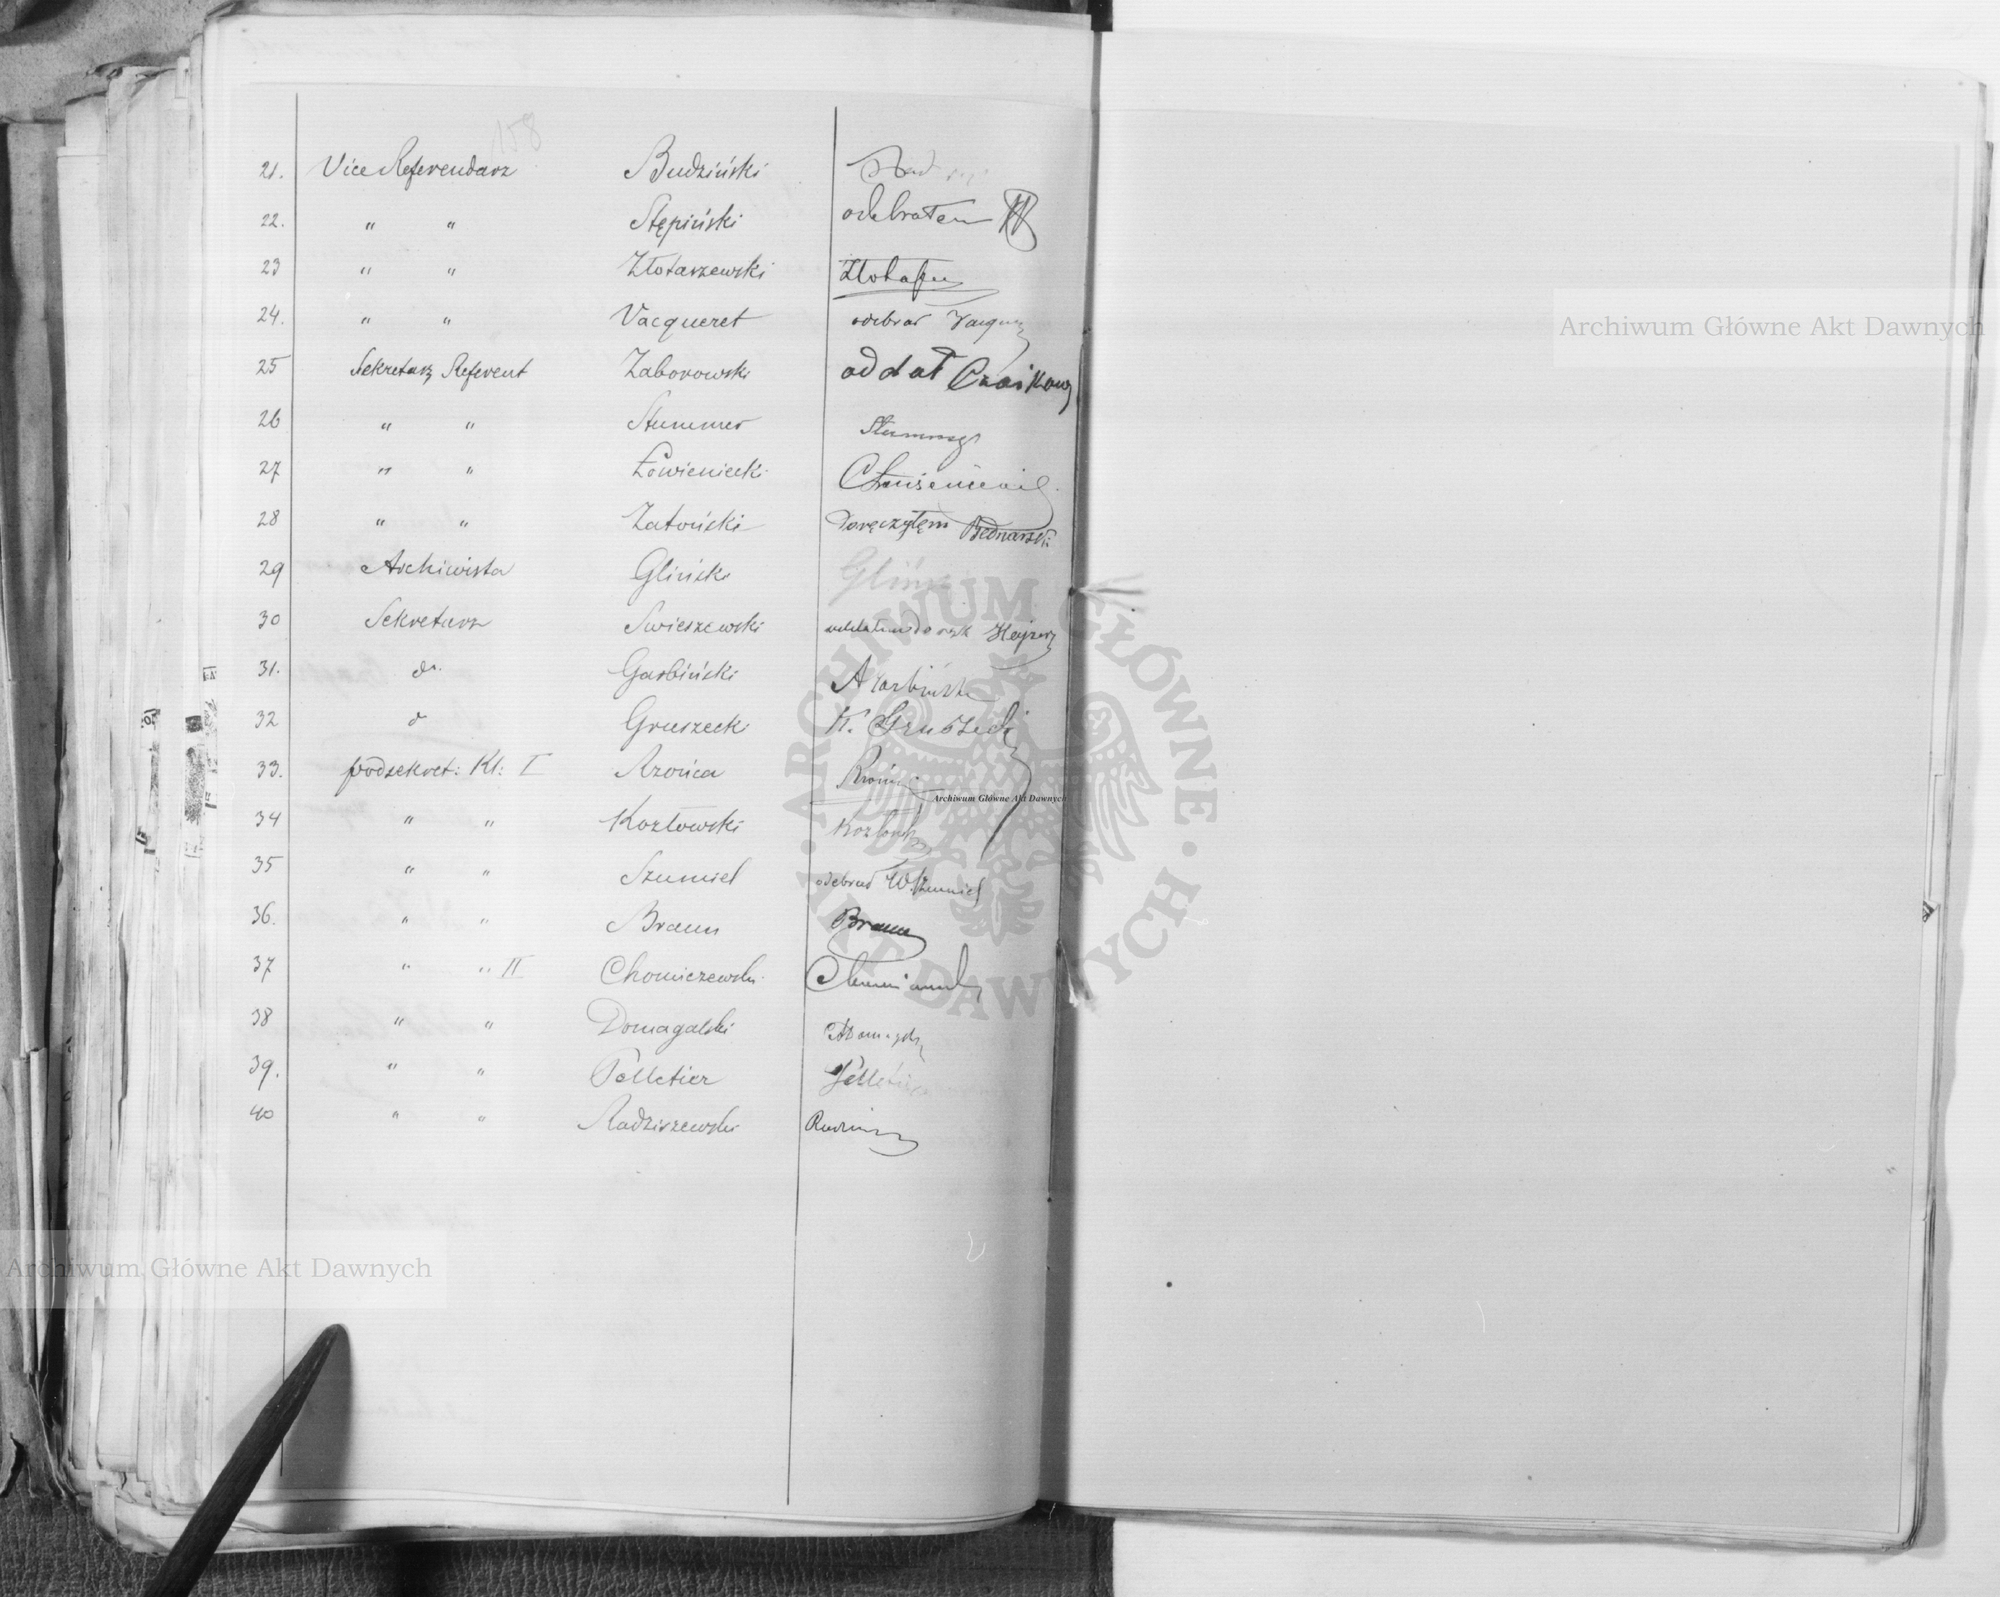 158
21. Vice Referendarz Budziński
22. " " Stępiński odebrałem
23 " " Złotarzewski
24. " " Vacqueret odebrał Vacquer
25 Sekretarz Referent Zaborowski oddał Czaikows
26 " " Stummer Stummer
27 " " Łowieniecki
28 " " Zatoński Doręczyłem Bednarski
29 Archiwista Gliński Glińsk
30 Sekretarz Swieszewski
31. do. Garbiński A Garbiński
32 do Gruszecki K. Gruszecki
33. podsekret: Kl: I Rzońca Rzońca
34 " " Kozłowski Kozłowski
35 " " Szumiel odebrał W. Szumiel
36. " " Braun Braun
37 " " II Chomiczewski
38 " " Domagalski
39. " " Pelletier Pelletier
40 " " Radziszewski
Archiwum Główne Akt Dawnych
ARCHIWUM GŁÓWNE · AKT DAWNYCH ·
Archiwum Główne Akt Dawnych
Archiwum Główne Akt Dawnych